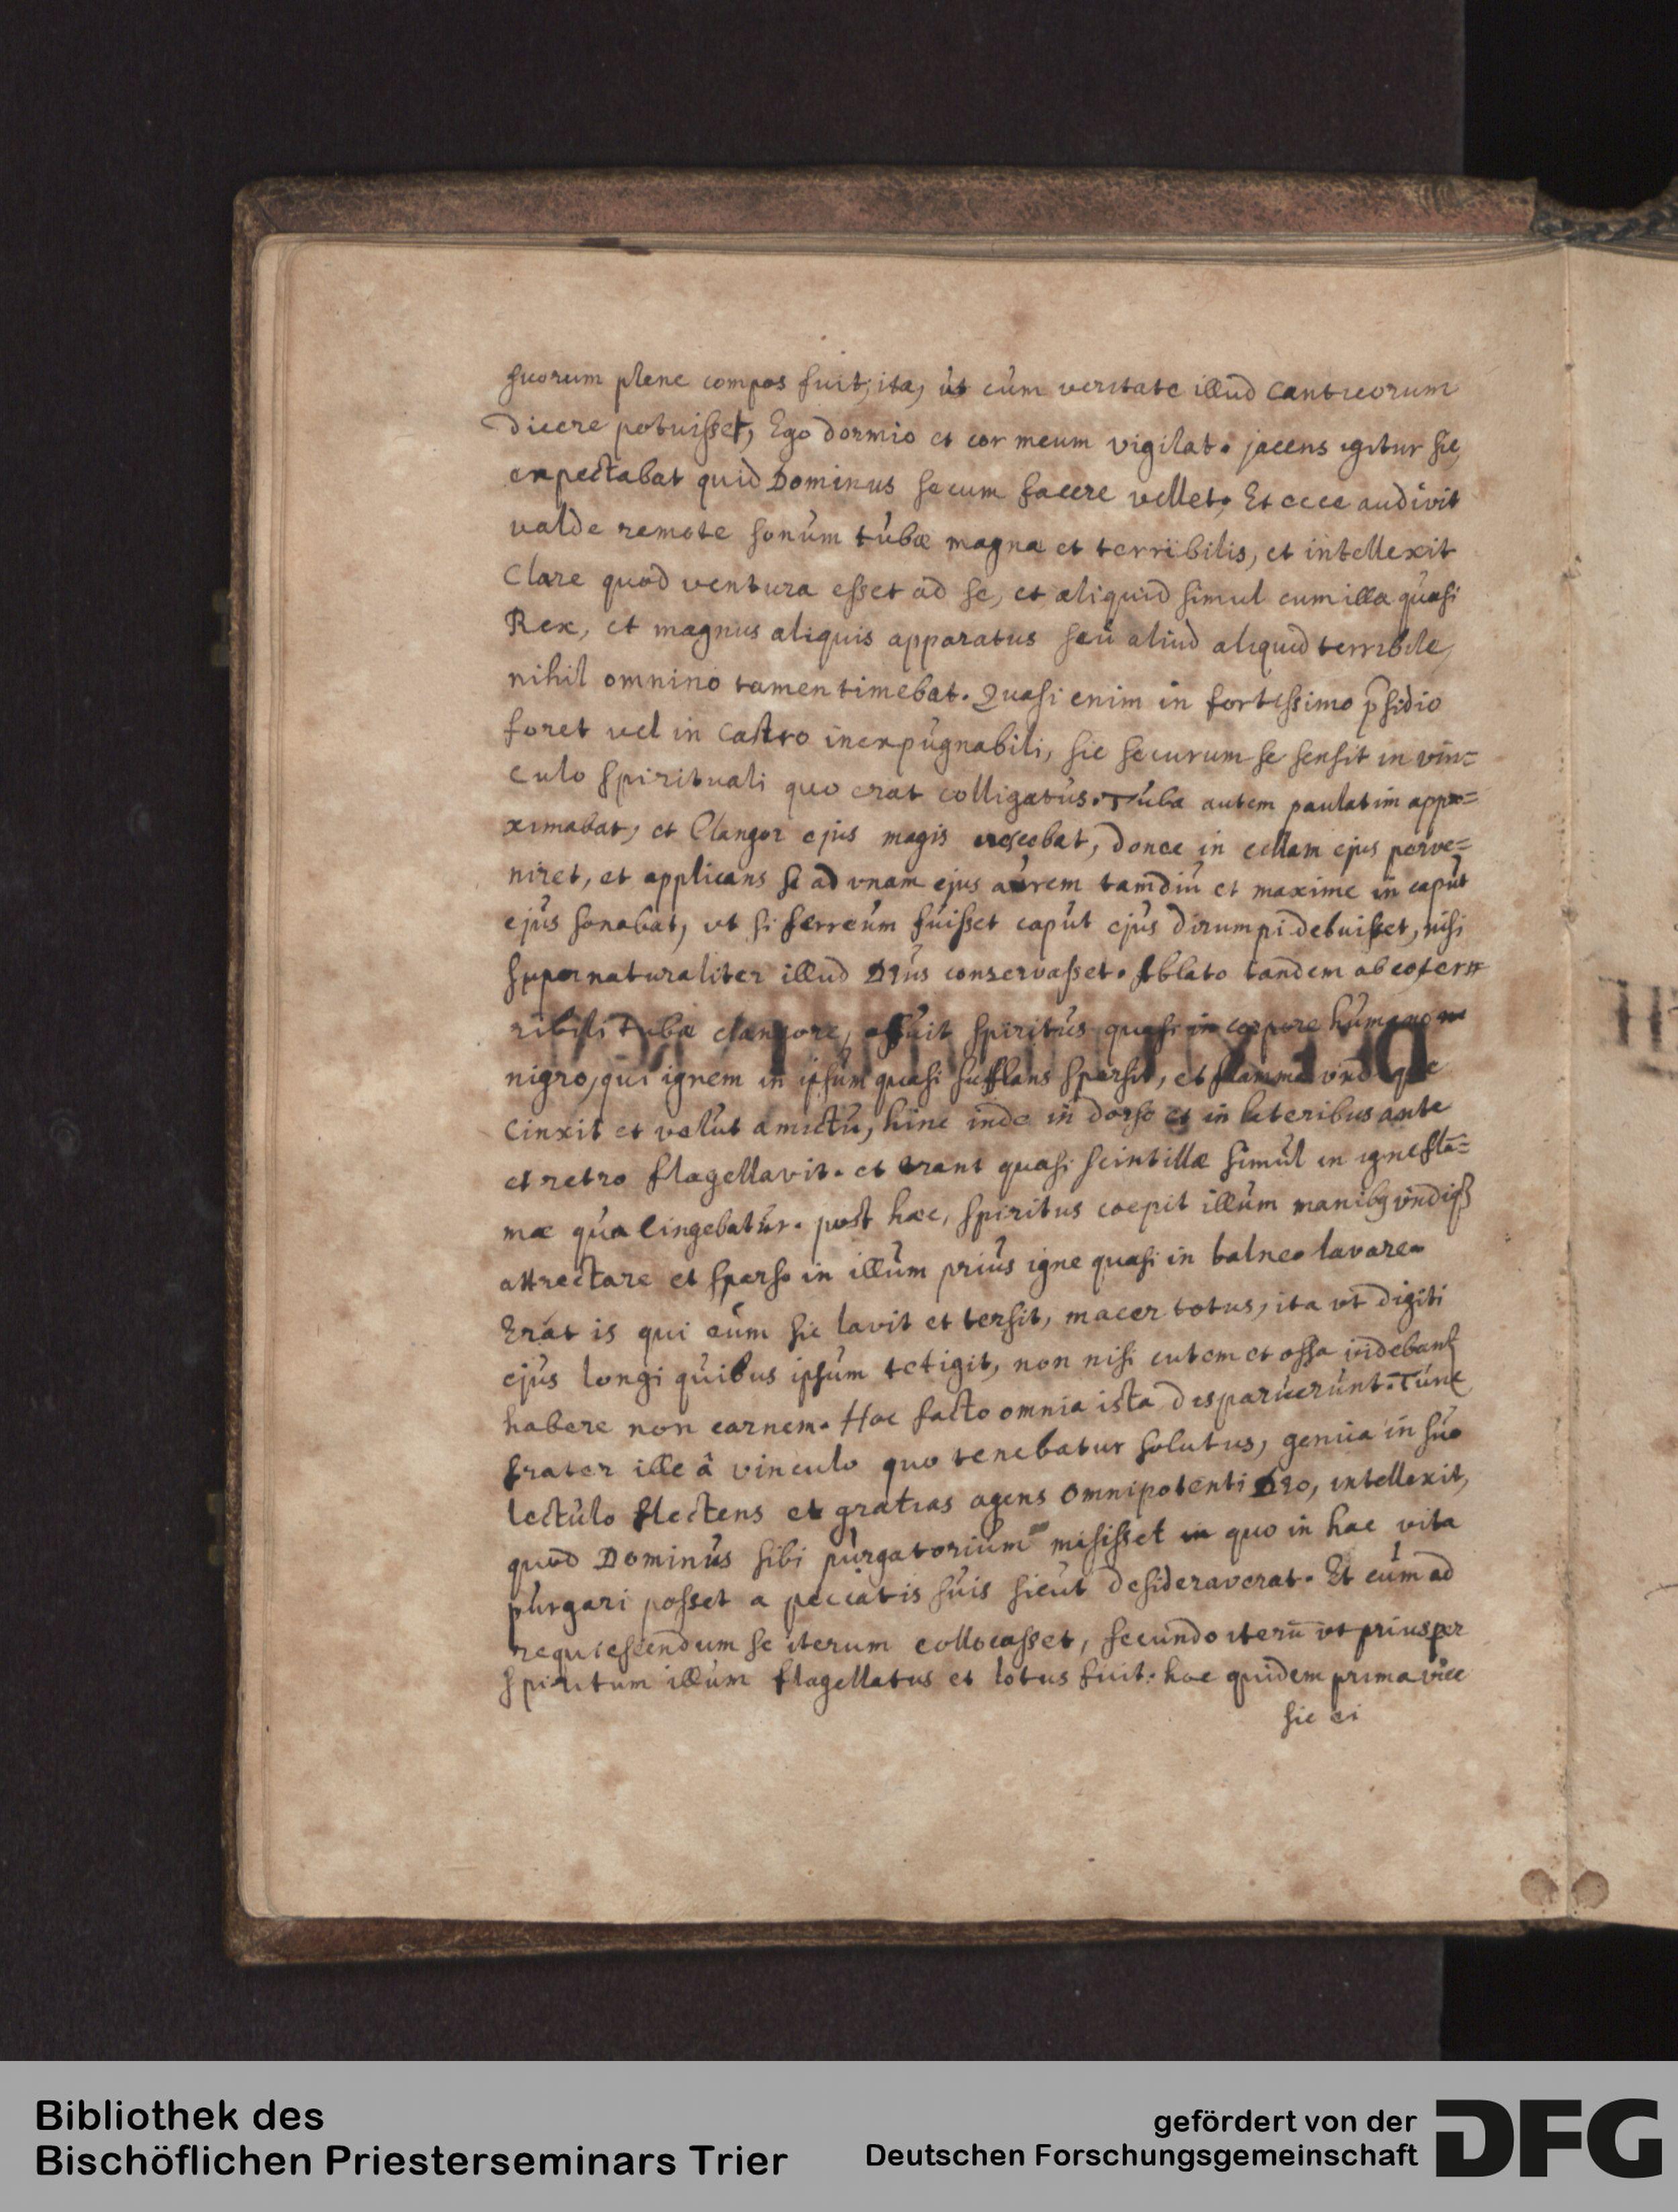 suorum plene compos fuit, ita, ut cum veritate illud Canticorum
dicere potuisset, Ego dormio et cor meum vigilat. jacens igitur sic
expectabat quid Dominus secum facere vellet. Et ecce audivit
valde remote sonum tubæ magnæ et terribilis, et intellexit
Clare quod ventura esset ad se, et aliquid simul cum illa quasi
Rex, et magnus aliquis apparatus seu aliud aliquid terribile,
nihil omnino tamen timebat. Quasi enim in fortissimo p̄sidio
foret vel in Castro inexpugnabili, sic securum se sensit in vin=
culo spirituali quo erat colligatus. Tuba autem paulatim appro=
ximabat, et Clangor ejus magis crescebat, donec in cellam ejus perve=
niret, et applicans se ad vnam ejus aurem tamdiu et maxime in caput
ejus sonabat, vt si ferreum fuisset caput ejus dirumpi debuisset, nisi
supernaturaliter illud Deus conservasset. Ablato tandem ab eo ter=
ribili Tubæ clangore, affuit spiritus quasi in corpore humano
nigro, qui ignem in ipsum quasi sufflans sparsit, et flamma
Cinxit et velut amictu, hinc inde in dorso et in lateribus ante
et retro flagellavit. et erant quasi scintillæ simul in igne flã=
mæ qua cingebatur. post hæc, spiritus coepit illum manibq undiqȝ
attrectare et sparso in illum prius igne quasi in balneo lavare.
Erat is qui eum sic lavit et tersit, macer totus, ita vt digiti
ejus longi quibus ipsum tetigit, non nisi cutem et ossa videbant
habere non carnem. Hoc facto omnia ista disparuerunt. Tunc
frater ille â vinculo quo tenebatur solutus, genua in suo
lectulo flectens et gratias agens Omnipotenti Deo, intellexit,
quod Dominus sibi purgatorium misisset in quo in hac vita
purgari posset a peccatis suis sicut desideraverat. Et cum ad
requiescendum se iterum collocasset, secundo iterū vt prius per
spiritum illum flagellatus et lotus fuit. hoc quidem prima vice
sic ei
Bibliothek des
Bischöflichen Priesterseminars Trier
gefördert von der
Deutschen Forschungsgemeinschaft
DFG